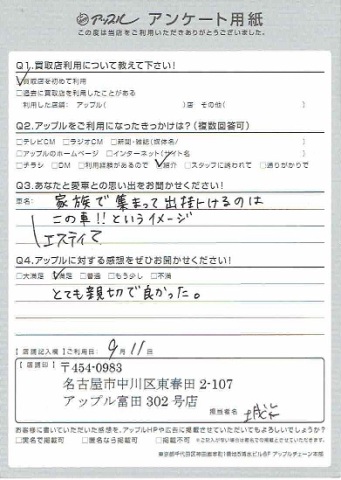 アップル アンケート用紙
この度は当店をご利用いただきありがとうございました。
Q1.買取店利用について教えて下さい!
☑買取店を初めて利用
□過去に買取店を利用したことがある
利用した店舗: アップル( )店 その他( )
Q2.アップルをご利用になったきっかけは?(複数回答可)
□テレビCM □ラジオCM □新聞・雑誌(媒体名/ )
□アップルのホームページ □インターネット(サイト名 )
□チラシ □DM □利用経験があるので ☑紹介 □スタッフに誘われて □通りがかりで
Q3.あなたと愛車との思い出をお聞かせください!
車名: 家族で集まって出掛けるのは
この車!!というイメージ
エスティマ
Q4.アップルに対する感想をぜひお聞かせください!
□大満足 ☑満足 □普通 □もう少し □不満
とても親切で良かった。
【店舗記入欄】ご利用日: 9月11日
【店舗印】 〒454-0983
名古屋市中川区東春田2-107
アップル富田302号店
担当者名
お客様に書いていただいた感想を、アップルHPや広告に掲載させていただいてもよろしいでしょうか?
□実名で掲載可 □匿名なら掲載可 □掲載不可